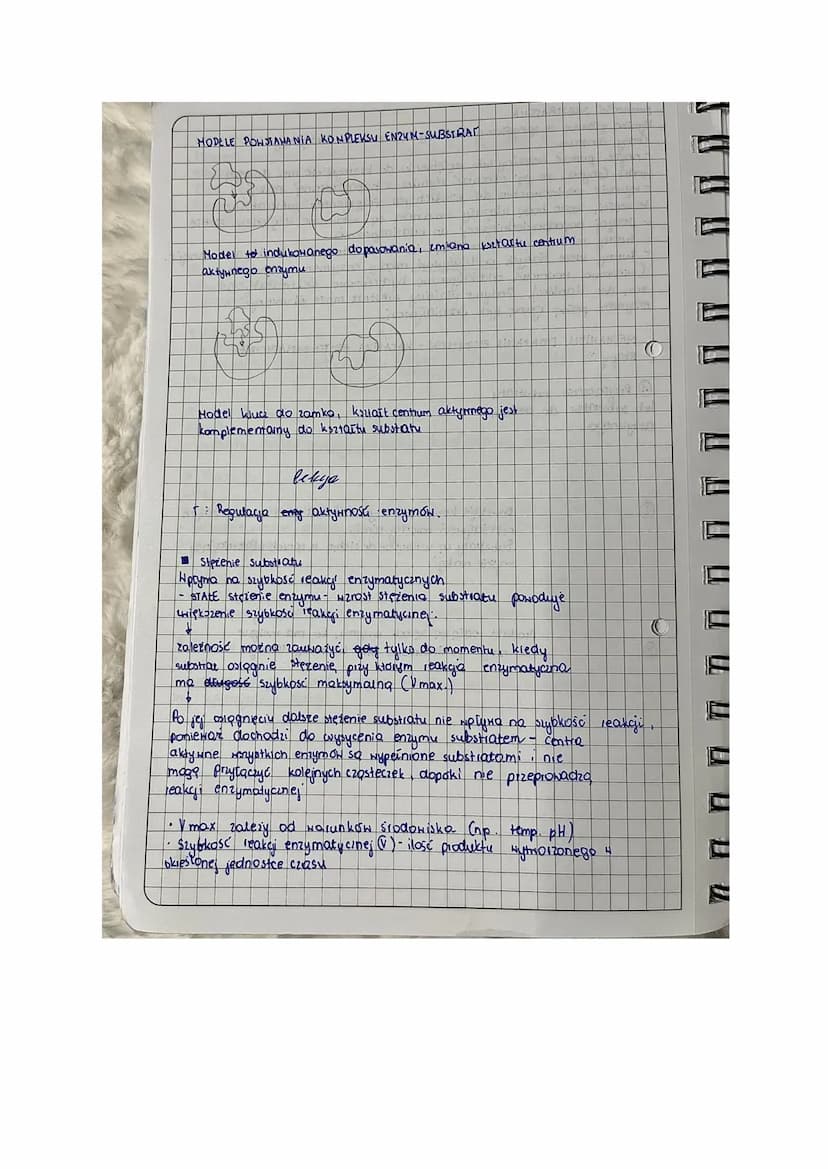 MODELE POWSTAWANIA KOMPLEKSU ENZYM-SUBSTRAT
Model indukowanego dopasowania, zmiana kształtu centrum
aktywnego enzymu
Model klucz do zamka, kształt centrum aktywnego jest
komplementarny do kształtu substratu
lekcja
T: Regulacja aktywność enzymów.
■ Stężenie substratu
Wpływa na szybkość reakcji enzymatycznych
- STAŁE stężenie enzymu - wzrost stężenia substratu powoduje
większenie szybkości reakcji enzymatycznej.
↓
zależność można zauważyć, gdy tylko do momentu, kiedy
substrat osiągnie stężenie, przy którym reakcja enzymatyczna
ma długość szybkość maksymalną (Vmax.)
↓
Po jej osiągnięciu dalsze stężenie substratu nie wpływa na szybkość reakcji,
ponieważ dochodzi do wysycenia enzymu substratem - centra
aktywne wszystkich enzymów są wypełnione substratami i nie
mogą przyłączyć kolejnych cząsteczek, dopóki nie przeprowadzą
reakcji enzymatycznej
· Vmax zależy od warunków środowiska (np. temp. pH)
· Szybkość reakcji enzymatycznej (V) - ilość produktu wytworzonego w
określonej jednostce czasu